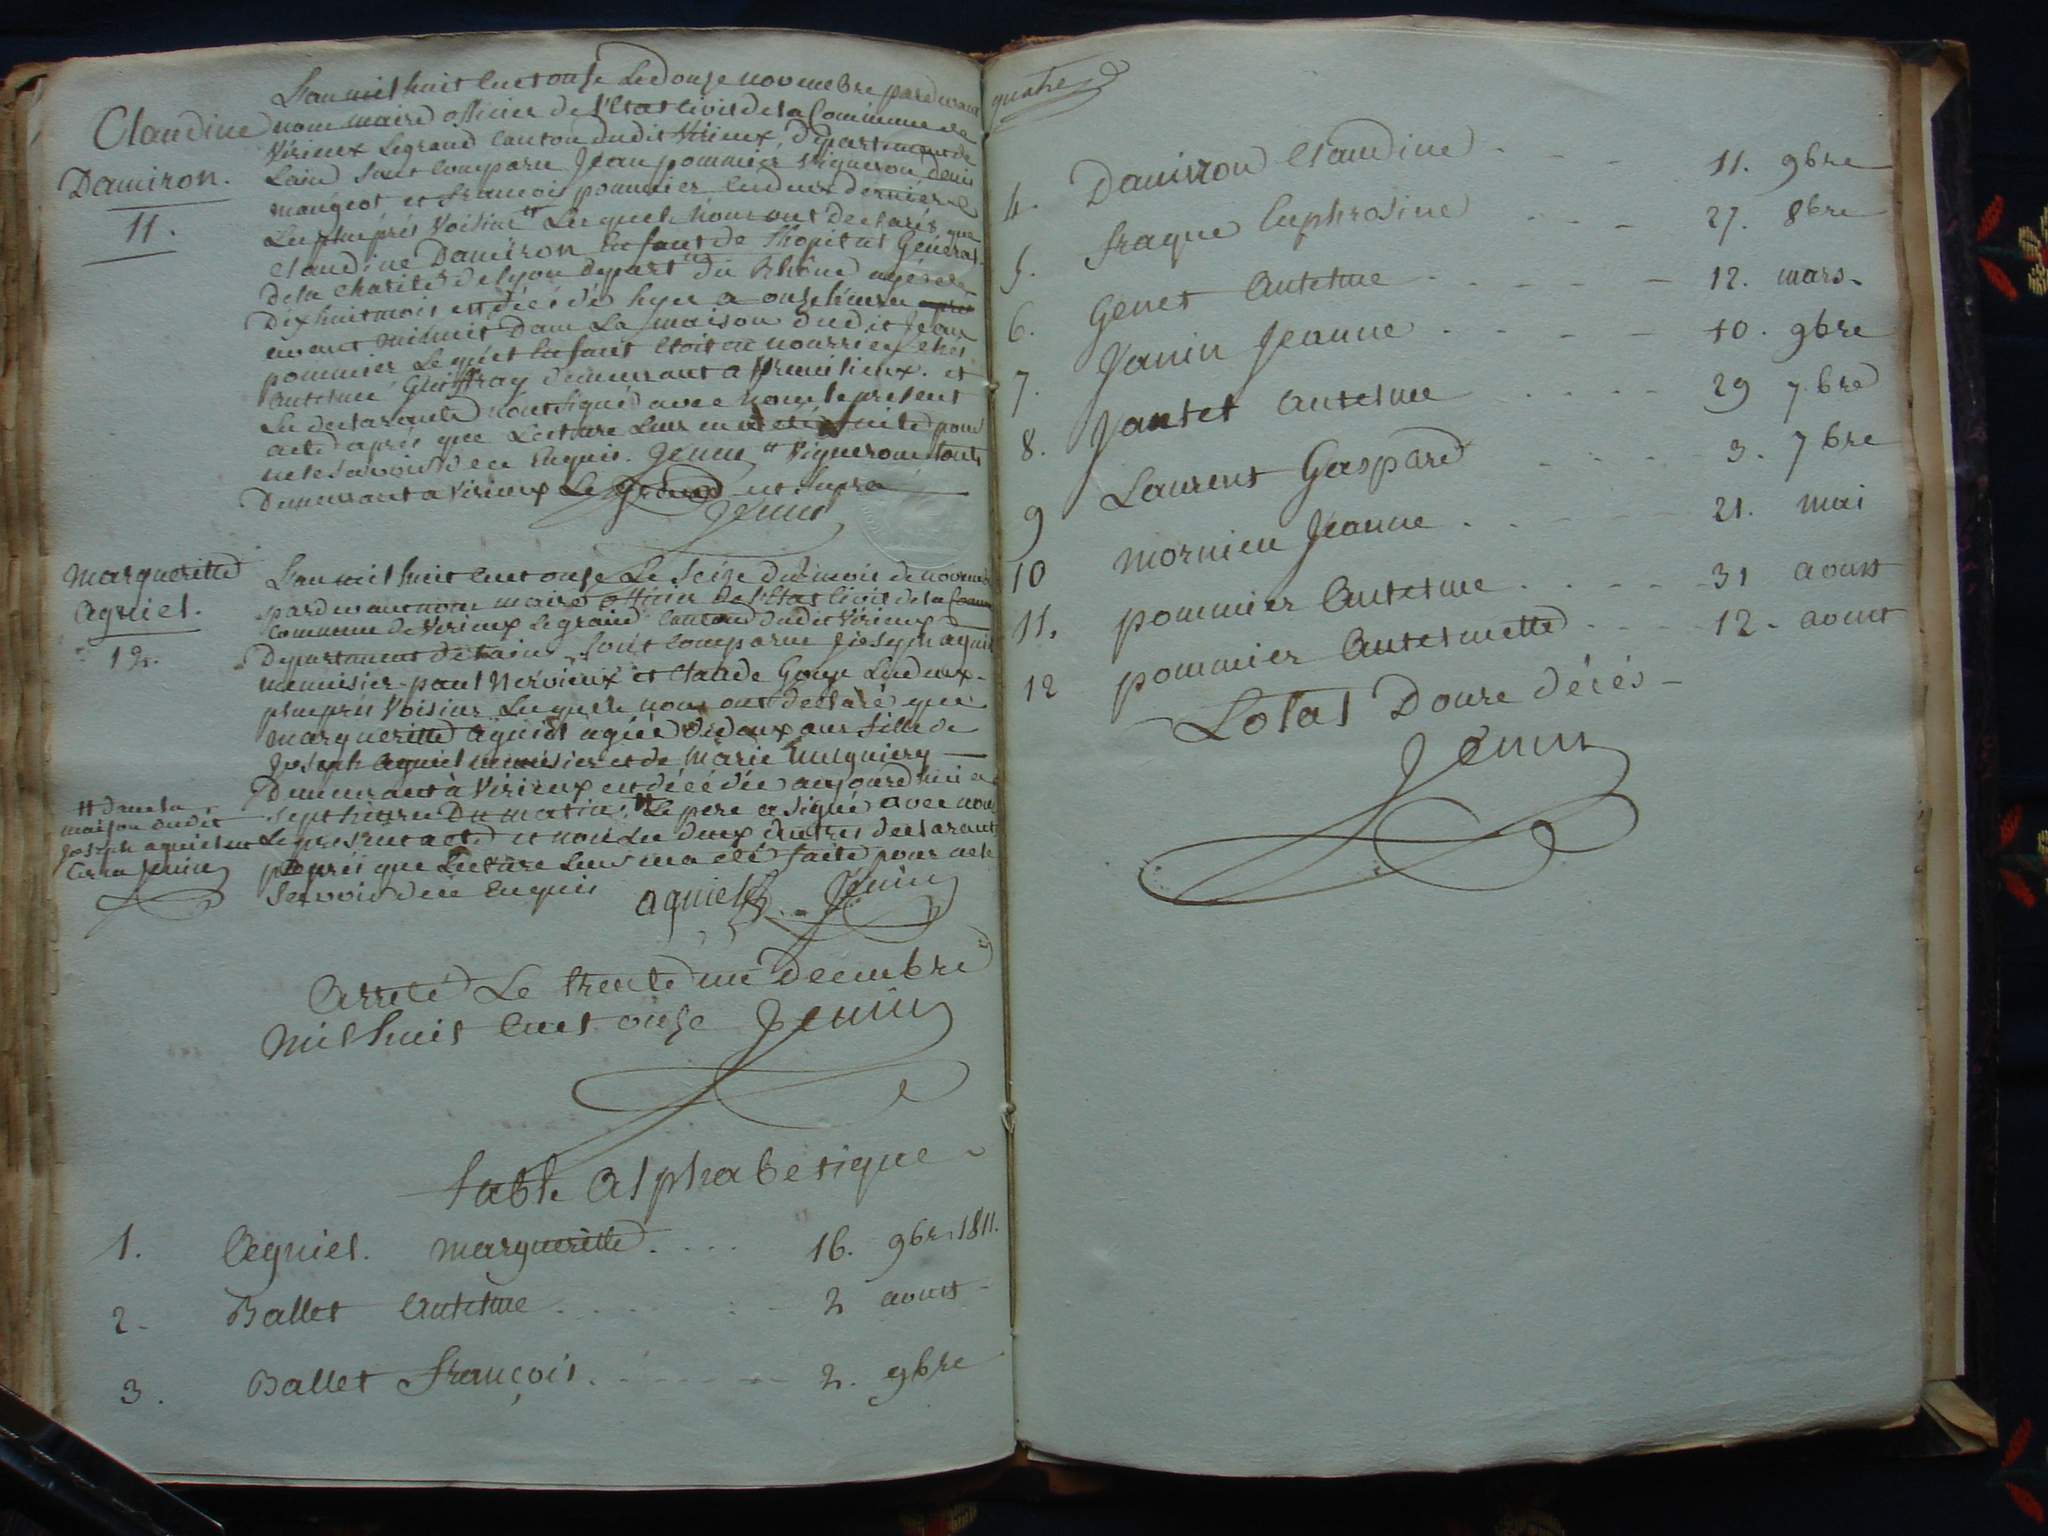 Claudine
Damiron.
11.
L'an mil huit cent onze le douze novembre pardevant
nous maire officier de l'Etat civil de la Commune de
Virieux le grand canton dudit Virieux, département de
L'ain sont comparu Jean pommier vigneron denis
mangeot et françois pommier Les deux dernier
Les plus prés voisins # Lesquels nous ont declarés que
Claudine Damiron Enfant de l'hopital Général
de la charité de lyon depart.t du Rhône agée de
dix huit mois est décédé hyer a onze heures
avant minuit Dans La maison dudit Jean
pommier Lequel Enfant etoit en nourrice chés
antelme Guiffray demeurant a armilieux. et
Les declarants n'ont signé avec nous le présent
acte aprés que Lecture Leur en a été faite pour
ne le savoir de ce Enquis. Jenin # vignerons touts
Demeurant a virieux Le Grand ut supra
Jenin
Margueritte
agniel.
12.
L'an mil huit cent onze Le Seize du mois de novembre
pardevant nous maire officier de l'Etat civil de la
Commune de Virieux Le grand canton dudit Virieux
Département de Lain sont comparu Joseph agniel
menuisier paul Nervieux et Claude Gouje Les deux
plus prés Voisins Lesquels nous ont declaré que
Marguerite agniel agée de deux ans fille de
Joseph agniel menuisier et de Marie
Demeurant à Virieux est décédée aujourd'hui a
sept heures Du matin # Le pere a signé avec nous
Le présent acte et non Les deux autres declarants
aprés que Lecture Leur en a été faite pour ne le
Savoir de ce Enquis agniel Jenin
# dans la
maison dudit
Joseph agniel
Jenin
Arreté Le trente un decembre
mil huit cent onze Jenin
table alphabetique
1. Agniel. Margueritte.... 16. 9bre 1811.
2. Ballet Antelme...... 2 aoust
3. Ballet françois...... 2. 9bre
quatre
4. Damiron Claudine... 11. 9bre
5. fraque Euphrosine... 27. 8bre
6. Genet Antelme..... 12. mars
7. Janin Jeanne.... 10. 9bre
8. Jantet Antelme.... 29 7bre
9 Laurent Gaspard.... 3. 7bre
10 mornieu Jeanne..... 21. mai
11. pommier Antelme.... 31 aoust
12 pommier Antelmette.... 12. aoust
Total Douze décés
Jenin